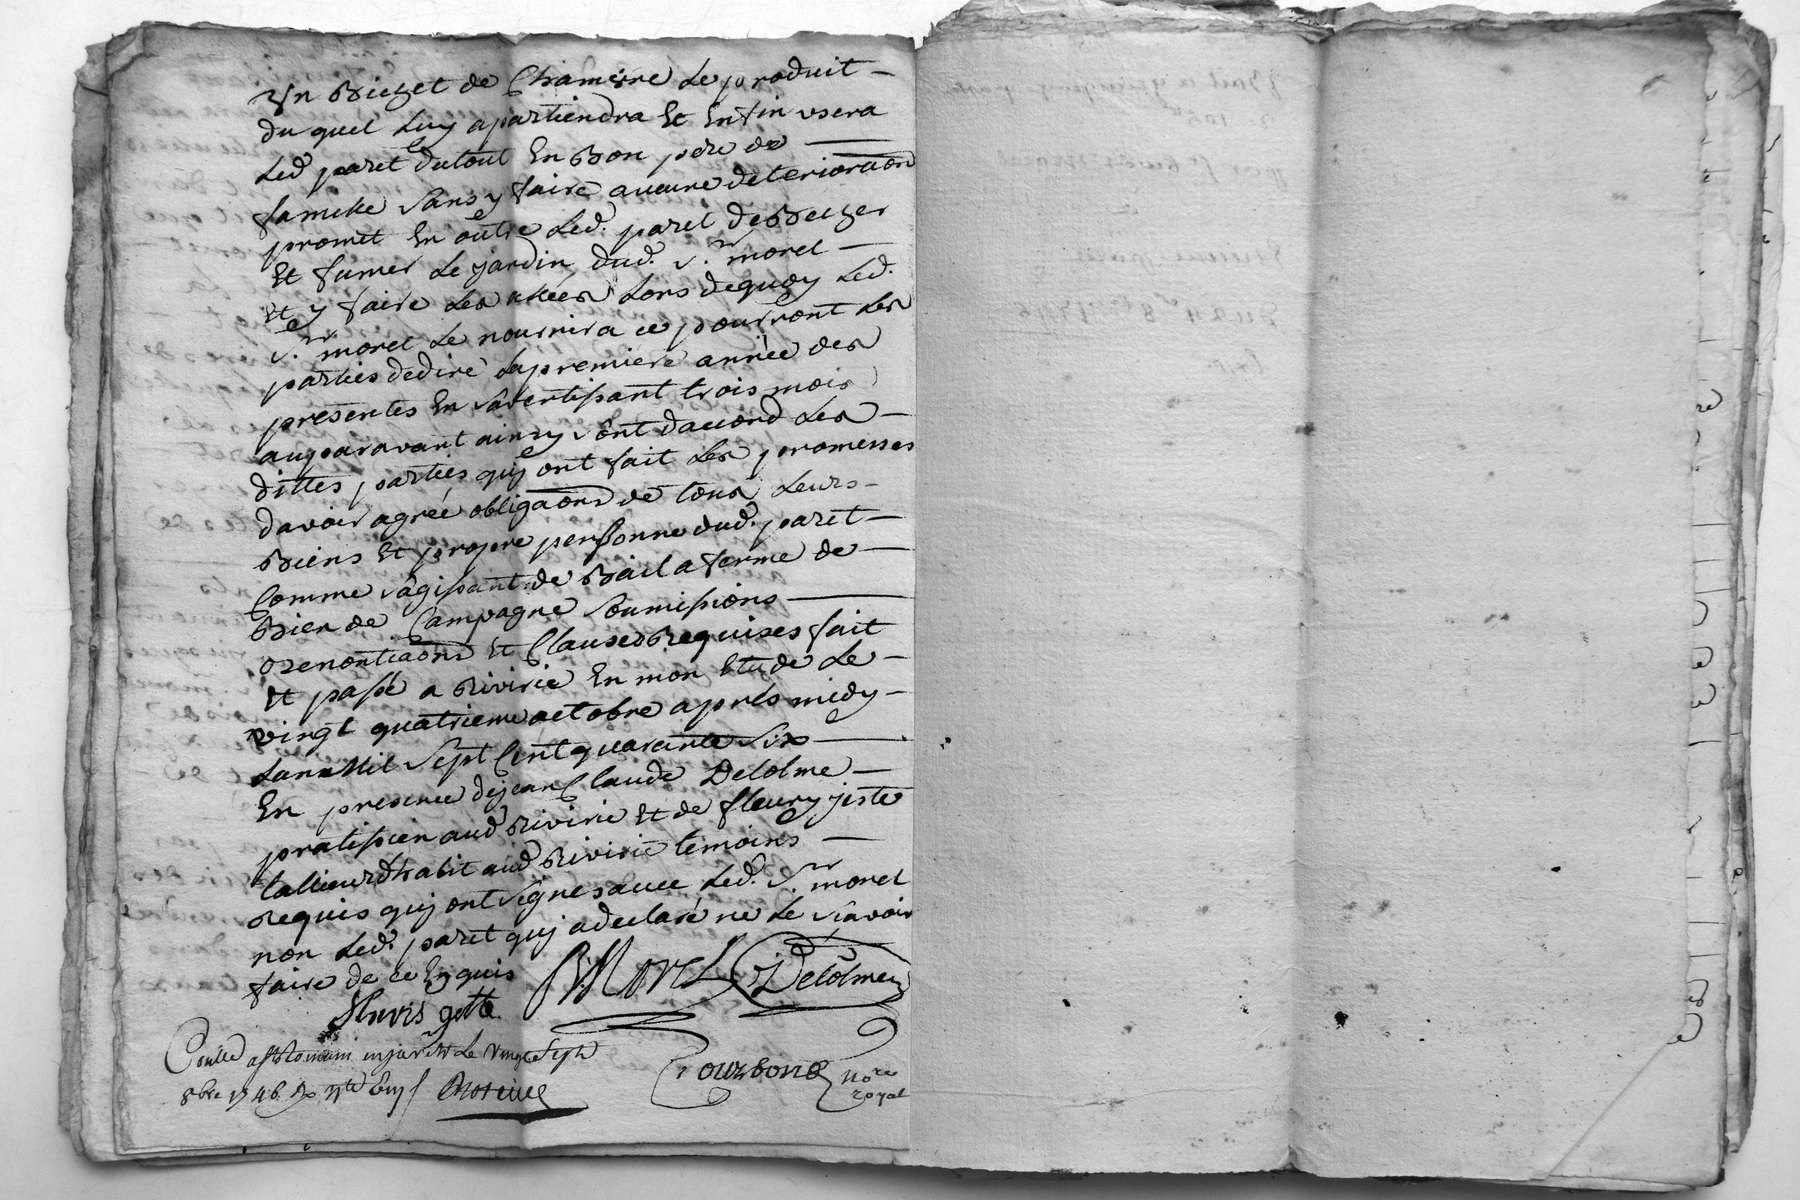 un Bichet de Chamvre Le produit
du quel Luy apartiendra Et Enfin usera
Led. paret dutout En Bon pere de
famille sans y faire aucune deterioraõn
promet En oûtre Led. paret de Becher
Et fumer Le jardin dud. Sr. morel
Et y faire Les allées Lors dequoy Led.
Sr. morel Le nourrira ce pourront Les
parties dedire Lapremiere année des
presentes En s'avertissant trois mois
auparavant ainsy sont daccord Les
dittes parties quy ont fait Les promesses
davoir agreé obligaõns de tous Leurs
Biens Et propre personne dud. paret
Comme sâgissant de Bail a ferme de
Bien de Campagne soumissions
renontiaõns Et Clauses Requises fait
Et passé a Rivirie En mon Etude Le
vingt quatrieme octobre aprés midy
Lan Mil Sept Cent quarante Six
En presence de jean Claude Delolme
pratissien aud Rivirie Et de fleury jeste
tallieur dhabit aud Rivirie temoins
Requis quy ont signe s avec Led. Sr. morel
non Led. paret quy a declaré ne Le sâvoir
faire de ce Enquis
Morel Delolme
fluris
Conllé a st Romain en jarêts Le vingt sept
8bre 1746
Bourbon No.re
royal